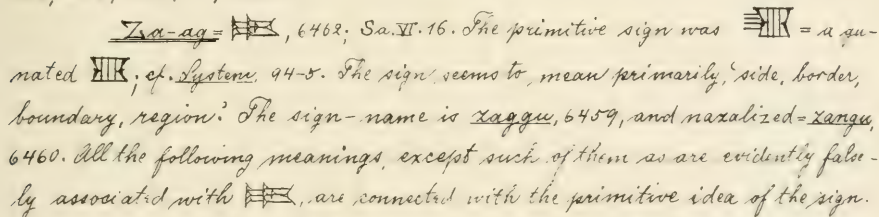 Za-ag = 𒍠, 6462; Sa.VI.16. The primitive sign was = a gu-
nated ; cf. System, 94-5. The sign seems to mean primarily, 'side, border,
boundary, region.' The sign-name is zaggu, 6459, and nazalized = zangu,
6460. All the following meanings, except such of them as are evidently false-
ly associated with 𒍠, are connected with the primitive idea of the sign.